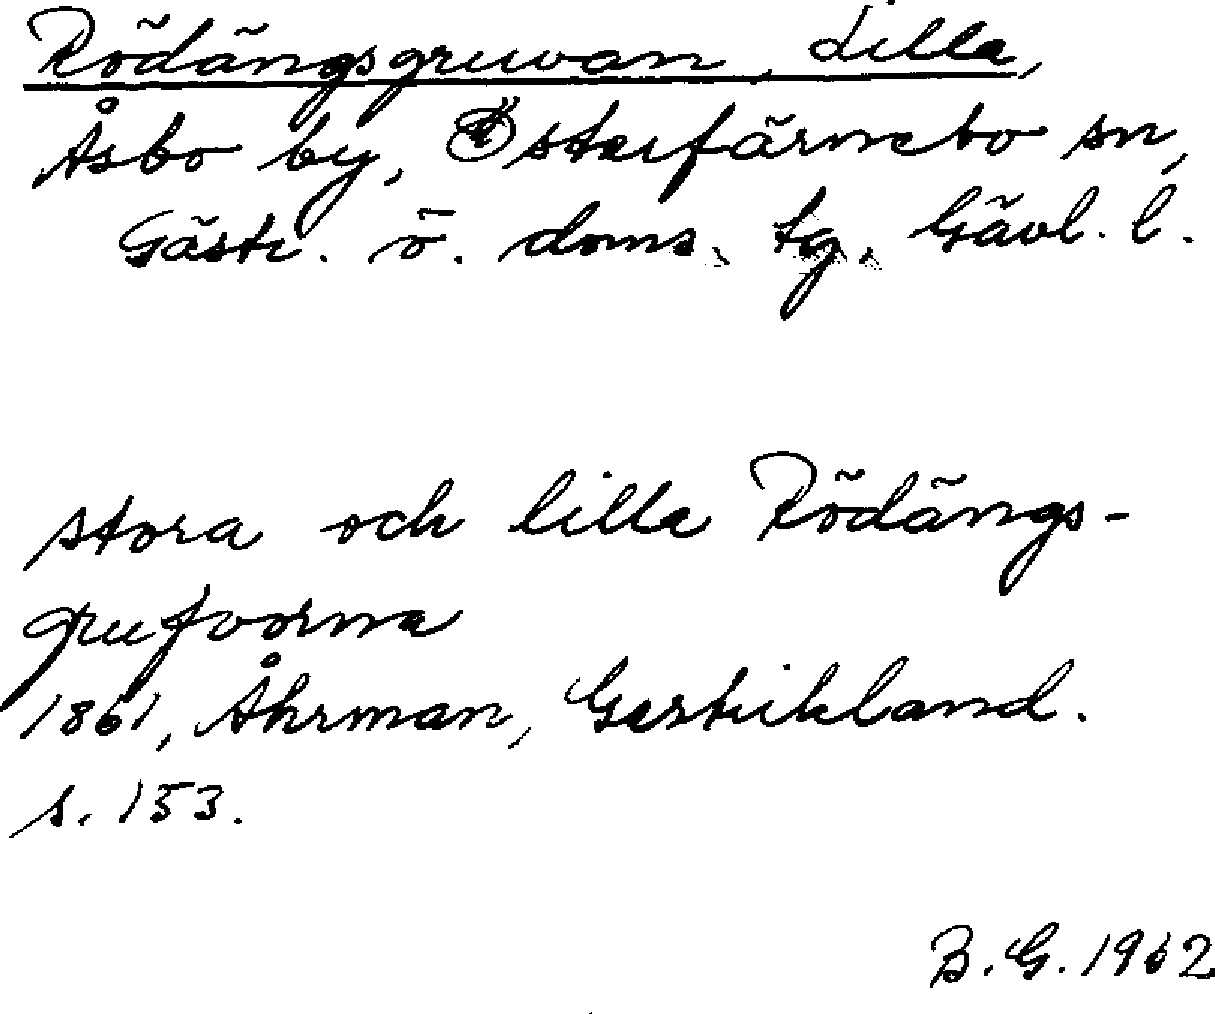 Rödängsgruvan, Lilla,
Åsbo by, Österfärnebo sn,
Gästr. ö. doms. tg. Gävl. l.
stora och lilla Rödängs-
grufvorna
1861, Åhrman, Gestrikland.
s. 153.
B.G. 1962